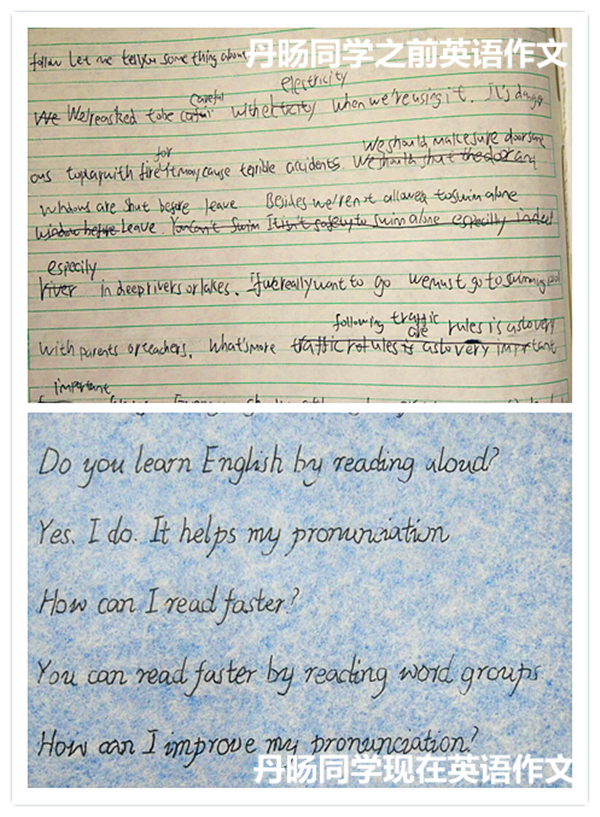 丹旸同学之前英语作文
follow Let me tell you something about
electricity
careful
We We're asked to be carful with elctcity when we're using it. It's danger
for We should make sure doors and
ous to play with fire It may cause terrible accidents. We should shut the door and
windows are shut before leave Besides we're not allowed to swim alone
window before leave. You can't swim It isn't safety to swim alone especilly in deed
especily
river in deep rivers or lakes. If we really want to go we must go to swimming pool
following traffic
rules is also very
with parents or teachers. What's more traffic rules is also very important
important
Do you learn English by reading aloud?
Yes. I do. It helps my pronunciation
How can I read faster?
You can read faster by reading word groups
How can I improve my pronunciation?
丹旸同学现在英语作文